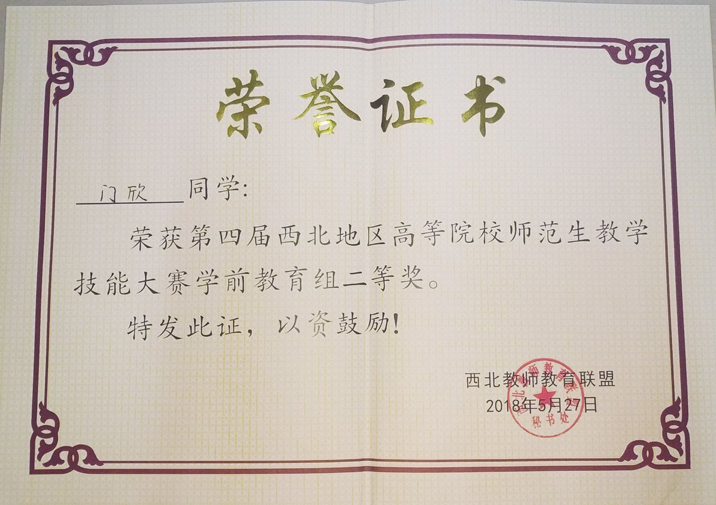 荣誉证书
门欣 同学:
荣获第四届西北地区高等院校师范生教学
技能大赛学前教育组二等奖。
特发此证，以资鼓励!
西北教师教育联盟
2018年5月27日
西北教师教育联盟
秘书处